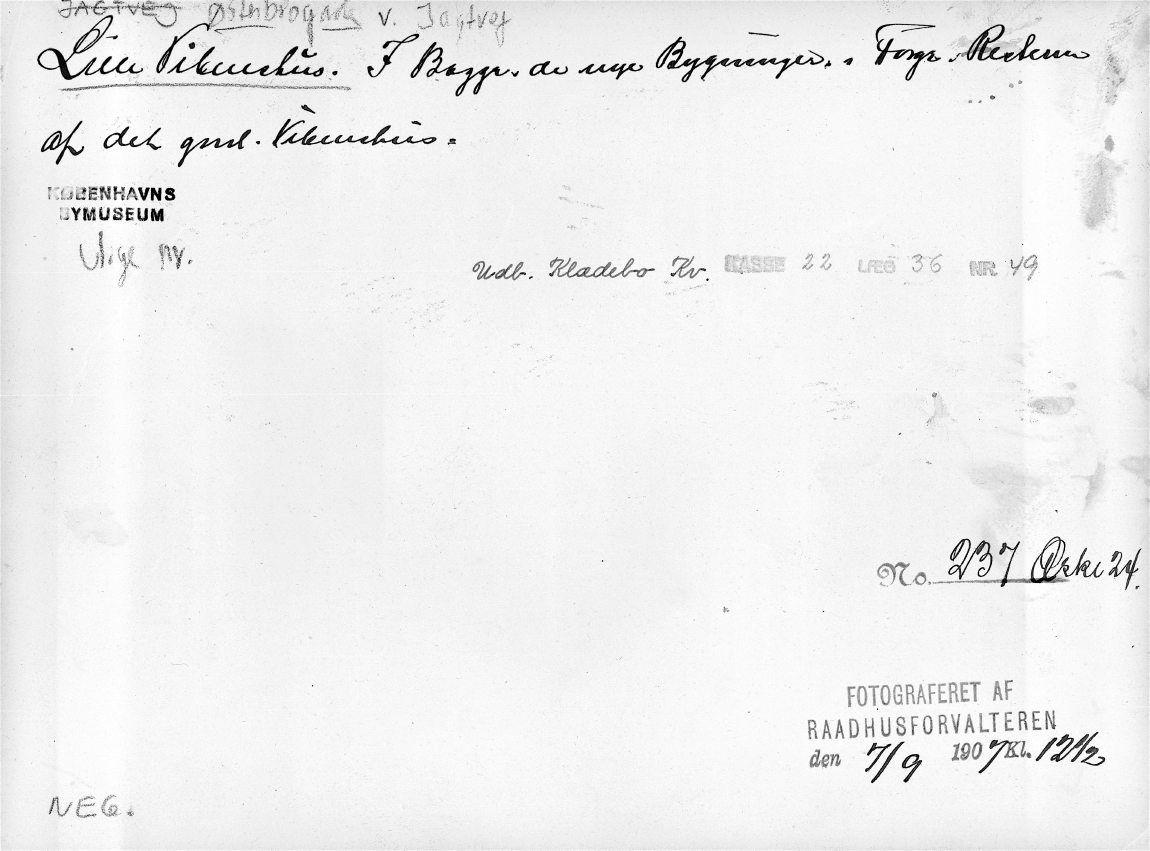 JAGTVEJ Østerbrogade v. Jagtvej
Lille Vibenshus. I Baggr. de nye Bygninger. i Forgr. Resterne
af det gml. Vibenshus.
KØBENHAVNS
BYMUSEUM
Udb. Kladebo Kv. KASSE 22 LÆG 36 NR. 49
No. 237 Æske 24.
FOTOGRAFERET AF
RAADHUSFORVALTEREN
den 7/9 1907 Kl. 12 1/2
NEG.